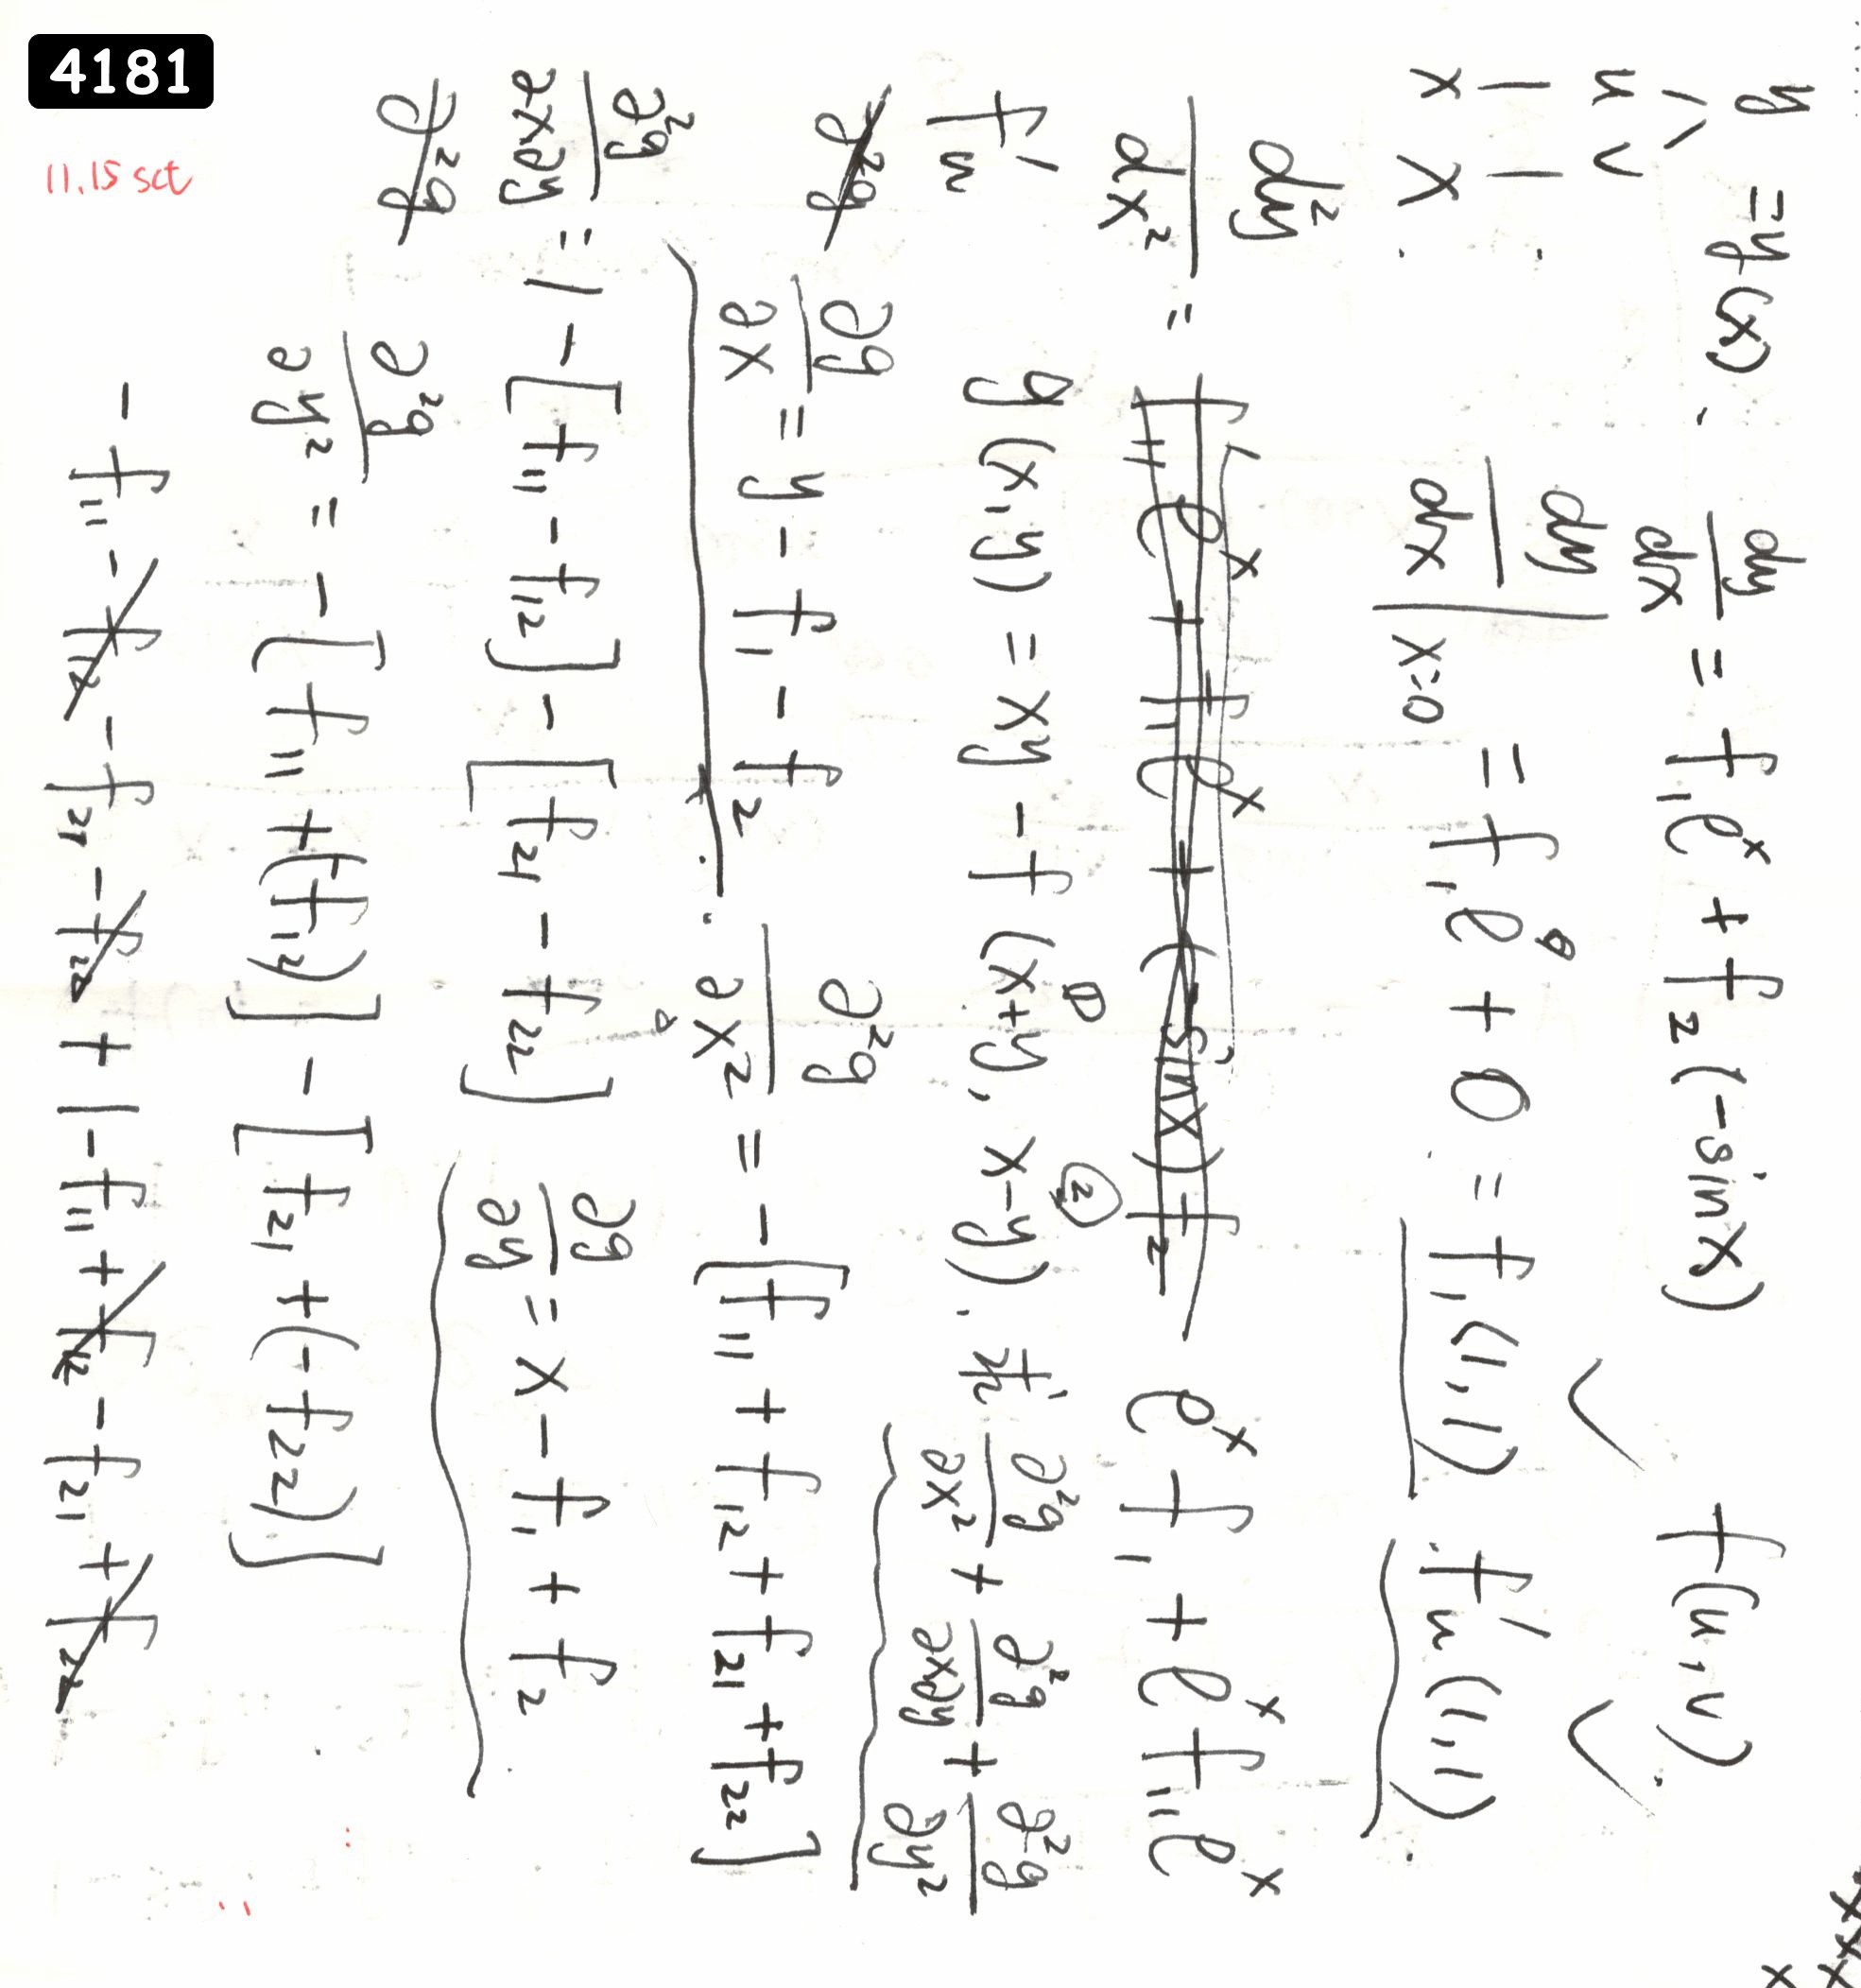 4181
11.15 sct
y = y(x). dy/dx = f₁eˣ + f₂(-sinx) f(u,v).
u v
x x.
dy/dx|x=0 = f₁e⁰ + 0 = f₁(1,1) f'u(1,1)
d²y/dx² = eˣf₁ + eˣf₁₁eˣ
f'u
g(x,y) = xy - f(x+y, x-y). ① ② ∂²g/∂x² + ∂²g/∂x∂y + ∂²g/∂y²
∂g/∂x = y - f₁ - f₂. ∂²g/∂x² = -[f₁₁ + f₁₂ + f₂₁ + f₂₂]
∂²g/∂x∂y = 1 - [f₁₁ - f₁₂] - [f₂₁ - f₂₂] ∂g/∂y = x - f₁ + f₂
∂²g/∂y² = -[f₁₁ + (f₁₂)] - [f₂₁ + (-f₂₂)]
- f₁₁ - f₁₂ - f₂₁ - f₂₂ + 1 - f₁₁ + f₁₂ - f₂₁ + f₂₂